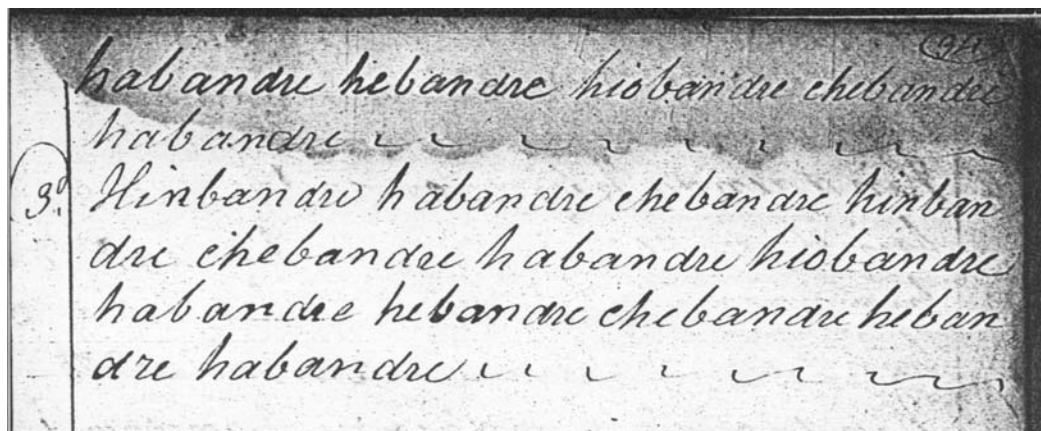 94
habandre hebandre hiobandre chebandre
habandre
3º Hinbandre habandre chebandre hinban
dre chebandre habandre hiobandre
habandre hebandre chebandre heban
dre habandre